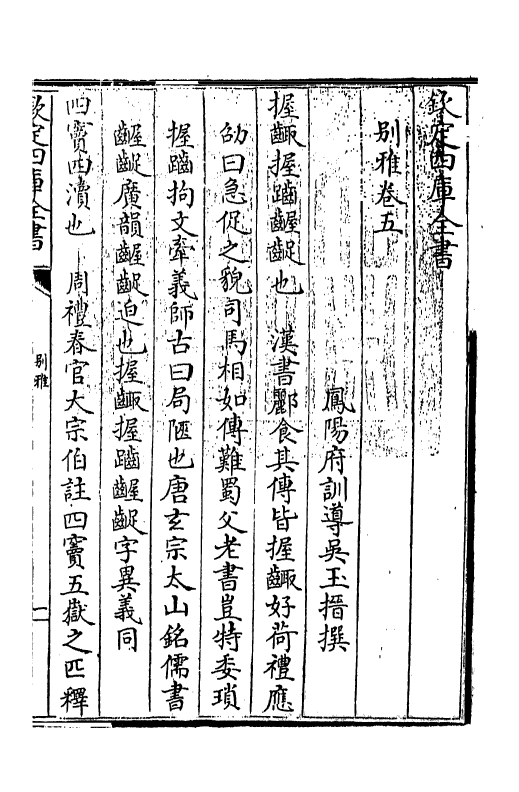 欽定四庫全書
別雅卷五
鳳陽府訓導吳玉搢撰
握齱握䠣齷齪也　漢書酈食其傳皆握齱好荷禮應
劭曰急促之貌司馬相如傳難蜀父老書豈特委瑣
握䠣拘文牽義師古曰局陋也唐玄宗太山銘儒書
齷齪廣韻齷齪迫也握齱握䠣齷齪字異義同
四竇四瀆也　周禮春官大宗伯註四竇五嶽之匹釋
欽定四庫全書
別雅
一